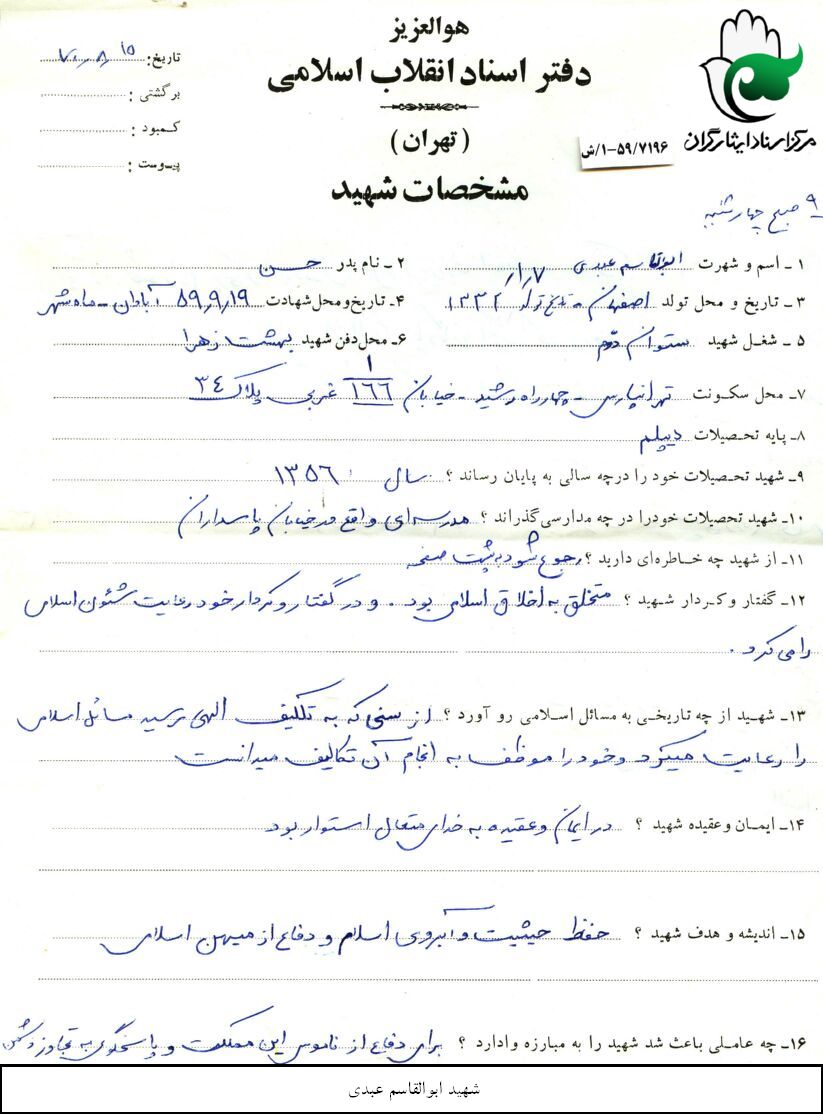 هوالعزیز
دفتر اسناد انقلاب اسلامی
(تهران)
مشخصات شهید
تاریخ: ۷۰،۸،۱۵
برگشتی:
کمبود:
پیوست:
مرکز اسناد ایثارگران
۱-۵۹/۷۱۹۶/ش
۹ صبح چهارشنبه
۱ـ اسم و شهرت ابوالقاسم عبدی ۲ـ نام پدر حسن
۳ـ تاریخ و محل تولد اصفهان - تاریخ تولد ۱۳۳۲/۱/۷ ۴ـ تاریخ و محل شهادت ۵۹،۹،۱۹ آبادان - ماهشهر
۵ـ شغل شهید ستوان دوم ۶ـ محل دفن شهید بهشت زهرا
۷ـ محل سکونت تهرانپارس - چهارراه رشید - خیابان ۱۶۶/۱ غربی پلاک ۳۴
۸ـ پایه تحصیلات دیپلم
۹ـ شهید تحصیلات خود را درچه سالی به پایان رساند؟ سال ۱۳۵۶
۱۰ـ شهید تحصیلات خودرا در چه مدارسی گذراند؟ مدرسه‌ای واقع در خیابان پاسداران
۱۱ـ از شهید چه خاطره‌ای دارید؟ رجوع شود به پشت صفحه
۱۲ـ گفتار و کردار شهید؟ متخلق به اخلاق اسلامی بود. و در گفتار و کردار خود رعایت شئون اسلامی
را می کرد.
۱۳ـ شهید از چه تاریخی به مسائل اسلامی رو آورد؟ از سنی که به تکلیف الهی رسید مسائل اسلامی
را رعایت میکرد و خود را موظف به انجام آن تکالیف میدانست
۱۴ـ ایمان و عقیده شهید؟ در ایمان و عقیده به خدای متعال استوار بود
۱۵ـ اندیشه و هدف شهید؟ حفظ حیثیت و آبروی اسلام و دفاع از میهن اسلامی
۱۶ـ چه عاملی باعث شد شهید را به مبارزه وادارد؟ برای دفاع از ناموس این مملکت و پاسخگوی به تجاوز دشمن
شهید ابوالقاسم عبدی